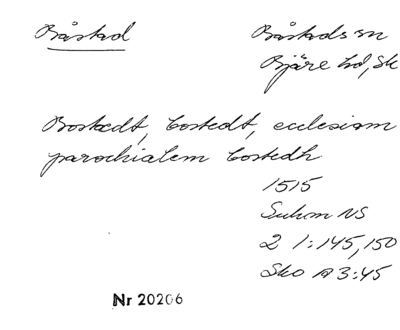 Båstad
Båstads sn
Bjäre hd, Sk
Bostedt, bostedt, ecclesiam
parochialem bostedh
1515
Suhm NS
2 1:145, 150
Sko A 3:45
Nr 20206